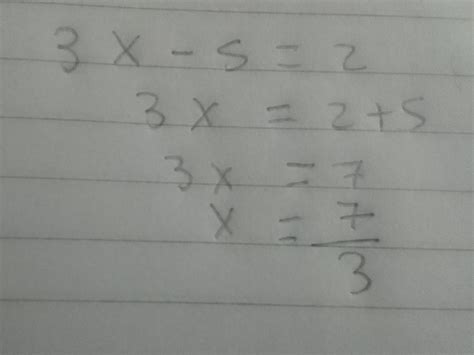 3x - 5 = 2
3x = 2+5
3x = 7
x = 7/3